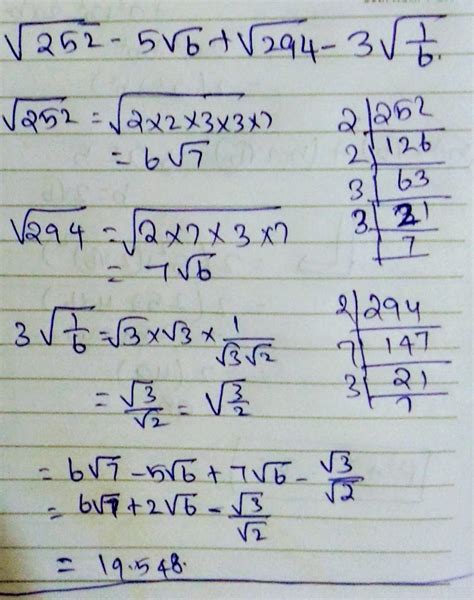 √252 - 5√6 + √294 - 3√(1/6).
√252 = √(2×2×3×3×7)
= 6√7
2 | 252
2 | 126
3 | 63
3 | 21
7
√294 = √(2×7×3×7)
= 7√6
3√(1/6) = √3 × √3 × 1/(√3√2)
= √3/√2 = √(3/2)
2 | 294
7 | 147
3 | 21
7
= 6√7 - 5√6 + 7√6 - √3/√2
= 6√7 + 2√6 - √3/√2
= 19.548.